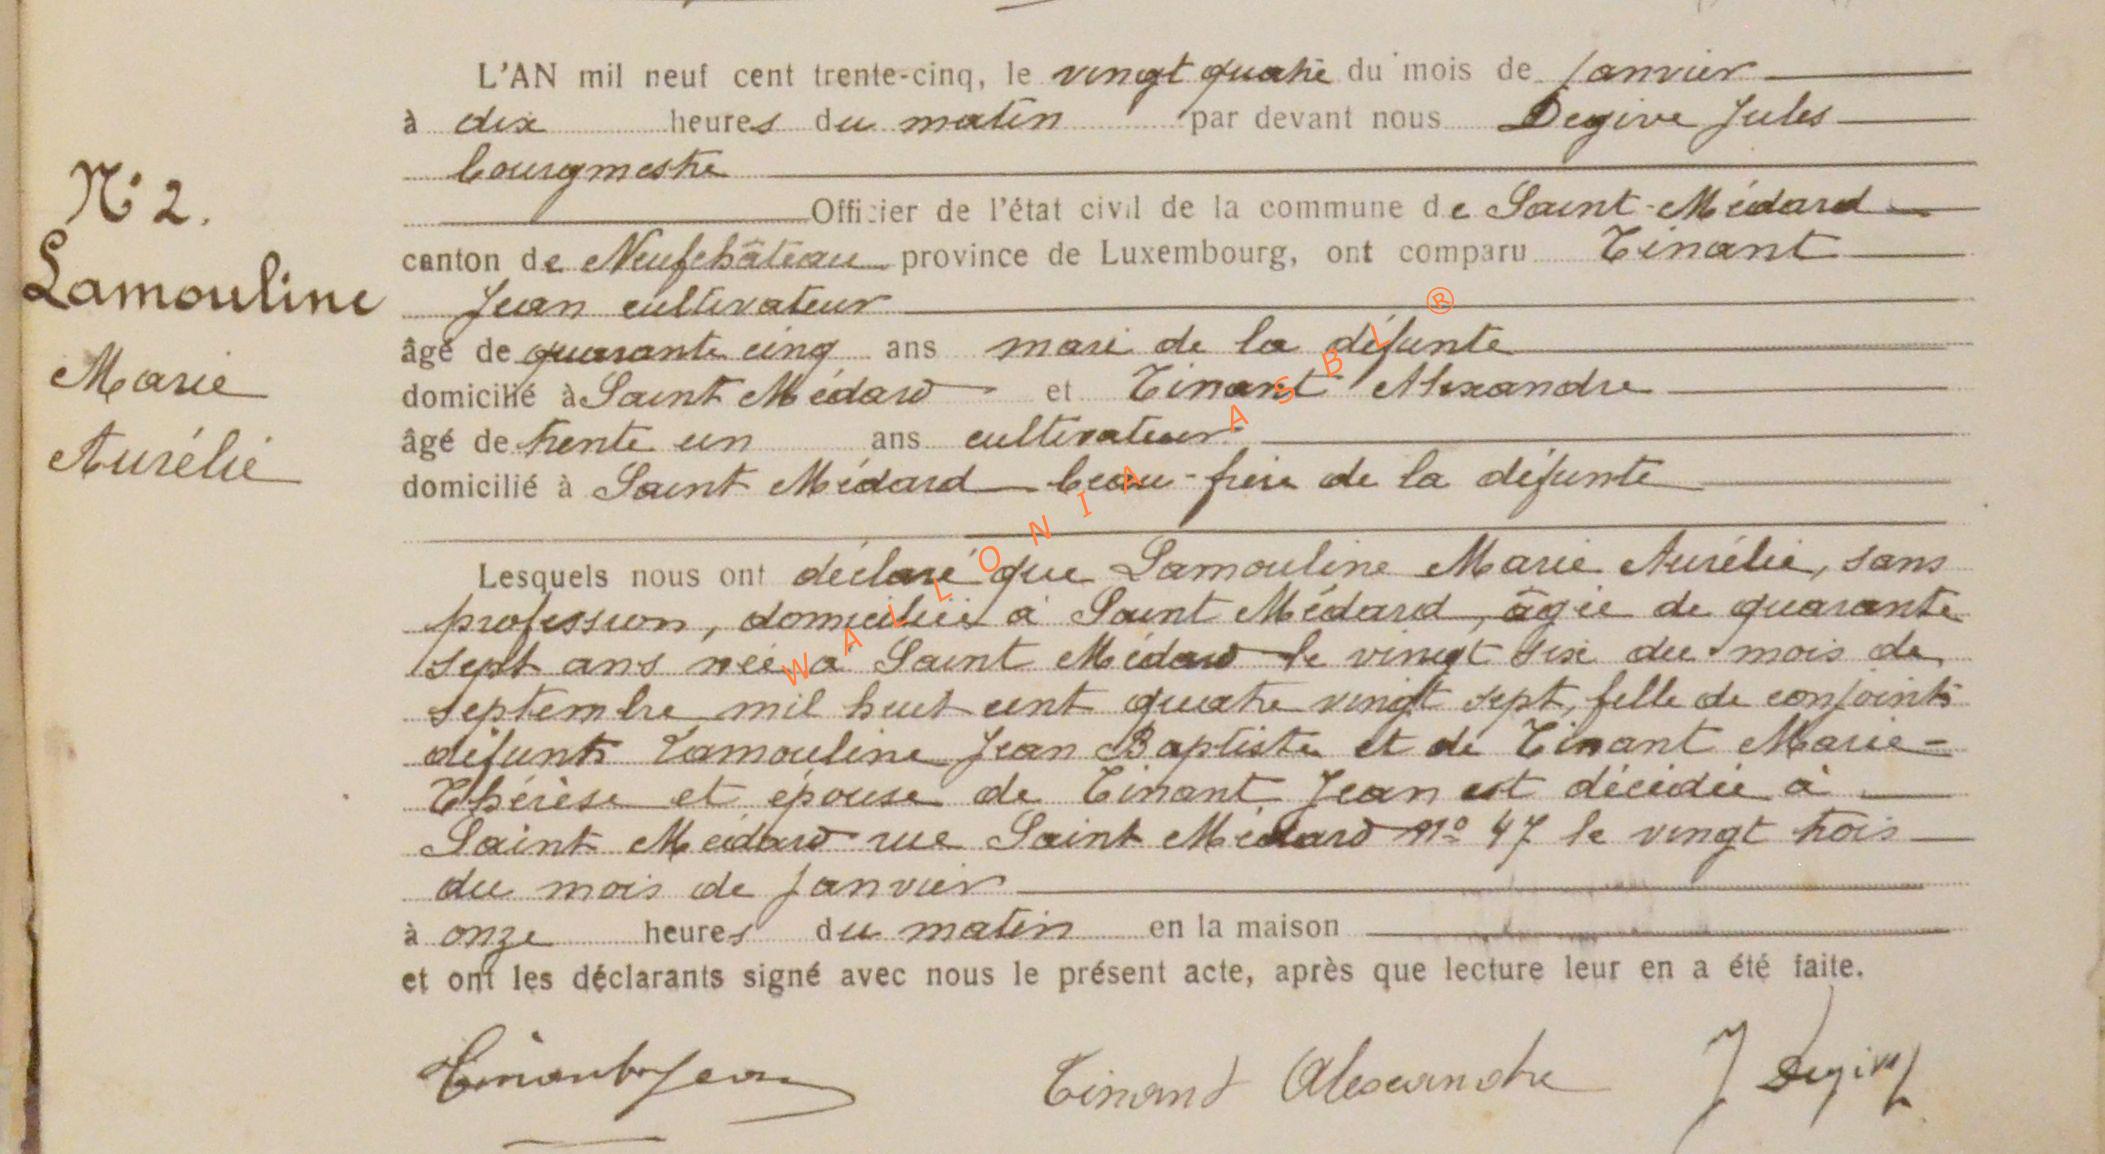 N° 2.
Lamouline
Marie
Aurélie
L'AN mil neuf cent trente-cinq, le vingt quatre du mois de Janvier
à dix heures du matin par devant nous Degive Jules
bourgmestre
Officier de l'état civil de la commune de Saint-Médard
canton de Neufchâteau province de Luxembourg, ont comparu Tinant
Jean cultivateur
âgé de quarante cinq ans mari de la défunte
domicilié à Saint Médard et Tinant Alexandre
âgé de trente un ans cultivateur
domicilié à Saint Médard beau-frère de la défunte
Lesquels nous ont déclaré que Lamouline Marie Aurélie, sans
profession, domiciliée à Saint Médard, âgée de quarante
sept ans née à Saint Médard le vingt six du mois de
septembre mil huit cent quatre vingt sept, fille de conjoints
défunts Lamouline Jean Baptiste et de Tinant Marie-
Thérèse et épouse de Tinant Jean est décédée à
Saint Médard rue Saint Médard n° 47 le vingt trois
du mois de Janvier
à onze heures du matin en la maison
et ont les déclarants signé avec nous le présent acte, après que lecture leur en a été faite.
Tinant Jean Tinant Alexandre J Degive
WALLONIA ASBL ®